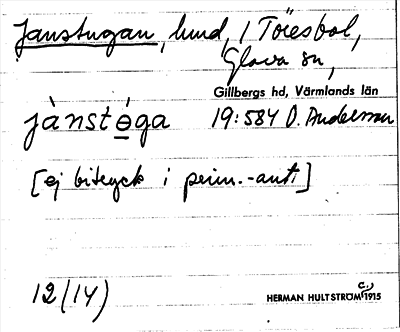 Janstugan, lund, / Töresbol,
Glava sn,
Gillbergs hd, Värmlands län
jànstǫ́ga 19:584 O. Anderson
[ej bitryck i prim.-ant.]
12/(14)
HERMAN HULTSTRÖM (c.) 1915